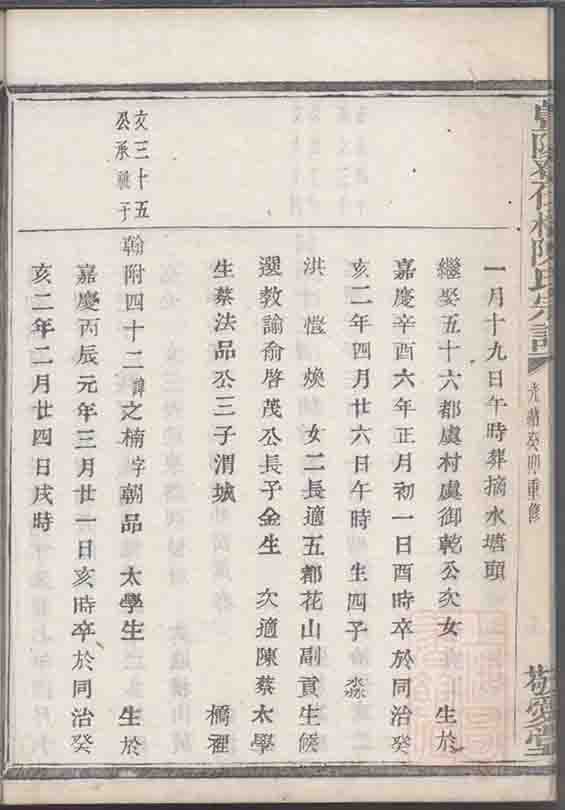 一月十九日午時葬摘水塘頭
繼娶五十六都虞村虞御乾公次女 生於
嘉慶辛酉六年正月初一日酉時卒於同治癸
亥二年四月廿六日午時 生四子 淼
洪 愷 煥 女二長適五都花山副貢生候
選教諭俞啓茂公長子金生 次適陳蔡太學
生蔡法品公三子渭城 橋裡
文三十五
公承祧子
翰附四十二諱之楠字朝品 太學生 生於
嘉慶丙辰元年三月廿一日亥時卒於同治癸
亥二年二月廿四日戌時
陳氏宗譜
光緒癸卯重修
敬愛堂